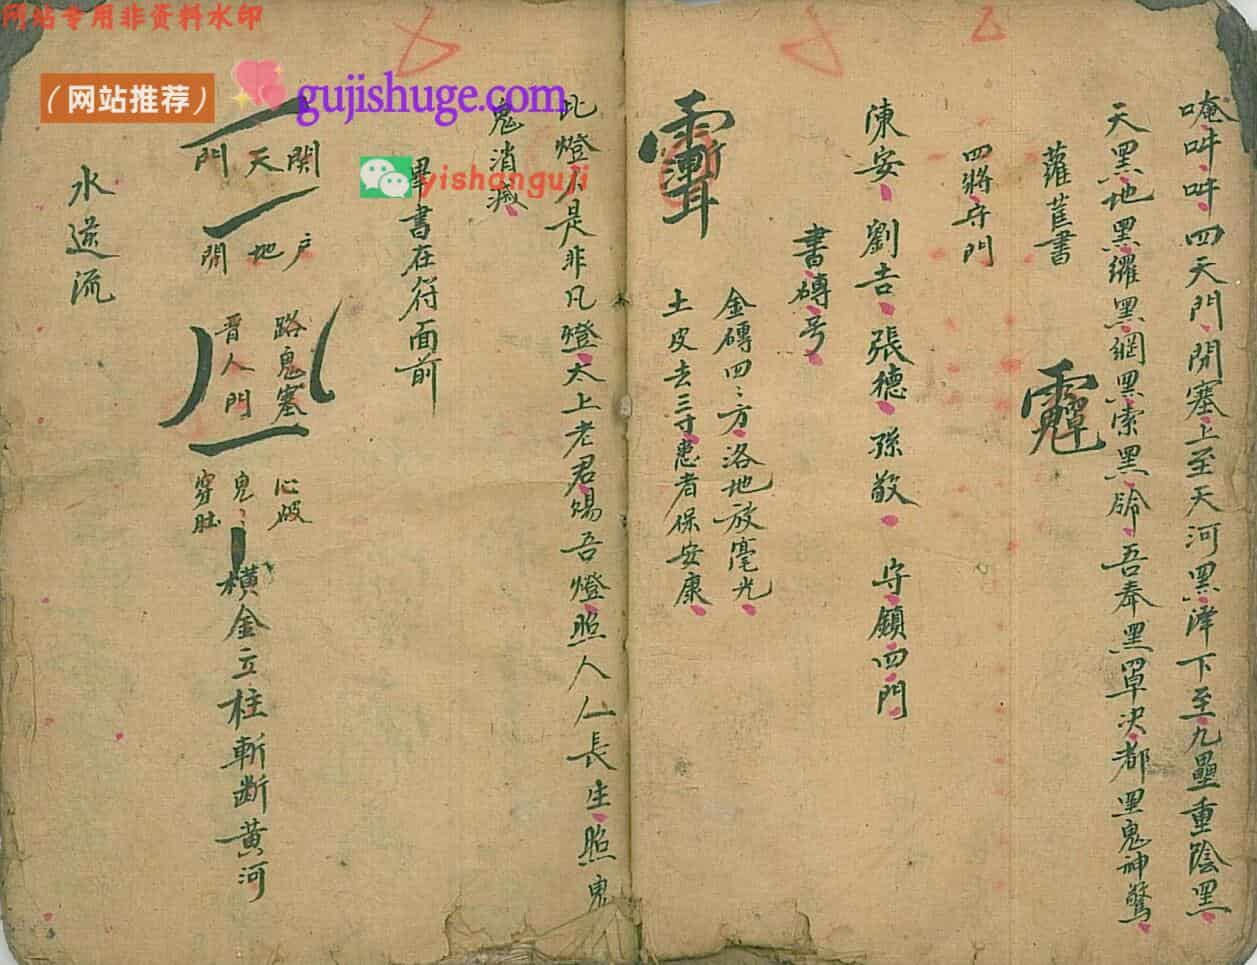 网站专用非资料水印
(网站推荐)
gujishuge.com
yishanguji
唵吽吽四天門閉塞上至天河黑澤下至九壘重陰黑
天黑地黑羅黑網黑索黑 吾奉黑罩决都黑鬼神驚
蘿蓲書
四將守門
陳安劉吉張德孫敬 守鎮四門
書磚号
金磚四〻方洛地放毫光
土皮去三寸患者保安康
此燈不是非凡燈太上老君賜吾燈照人人長生照鬼
鬼消滅
畢書在符面前
關天門
户地閉
路鬼塞
晋人門
心破
鬼〻
穿肚
橫金立柱斬斷黄河
水逆流